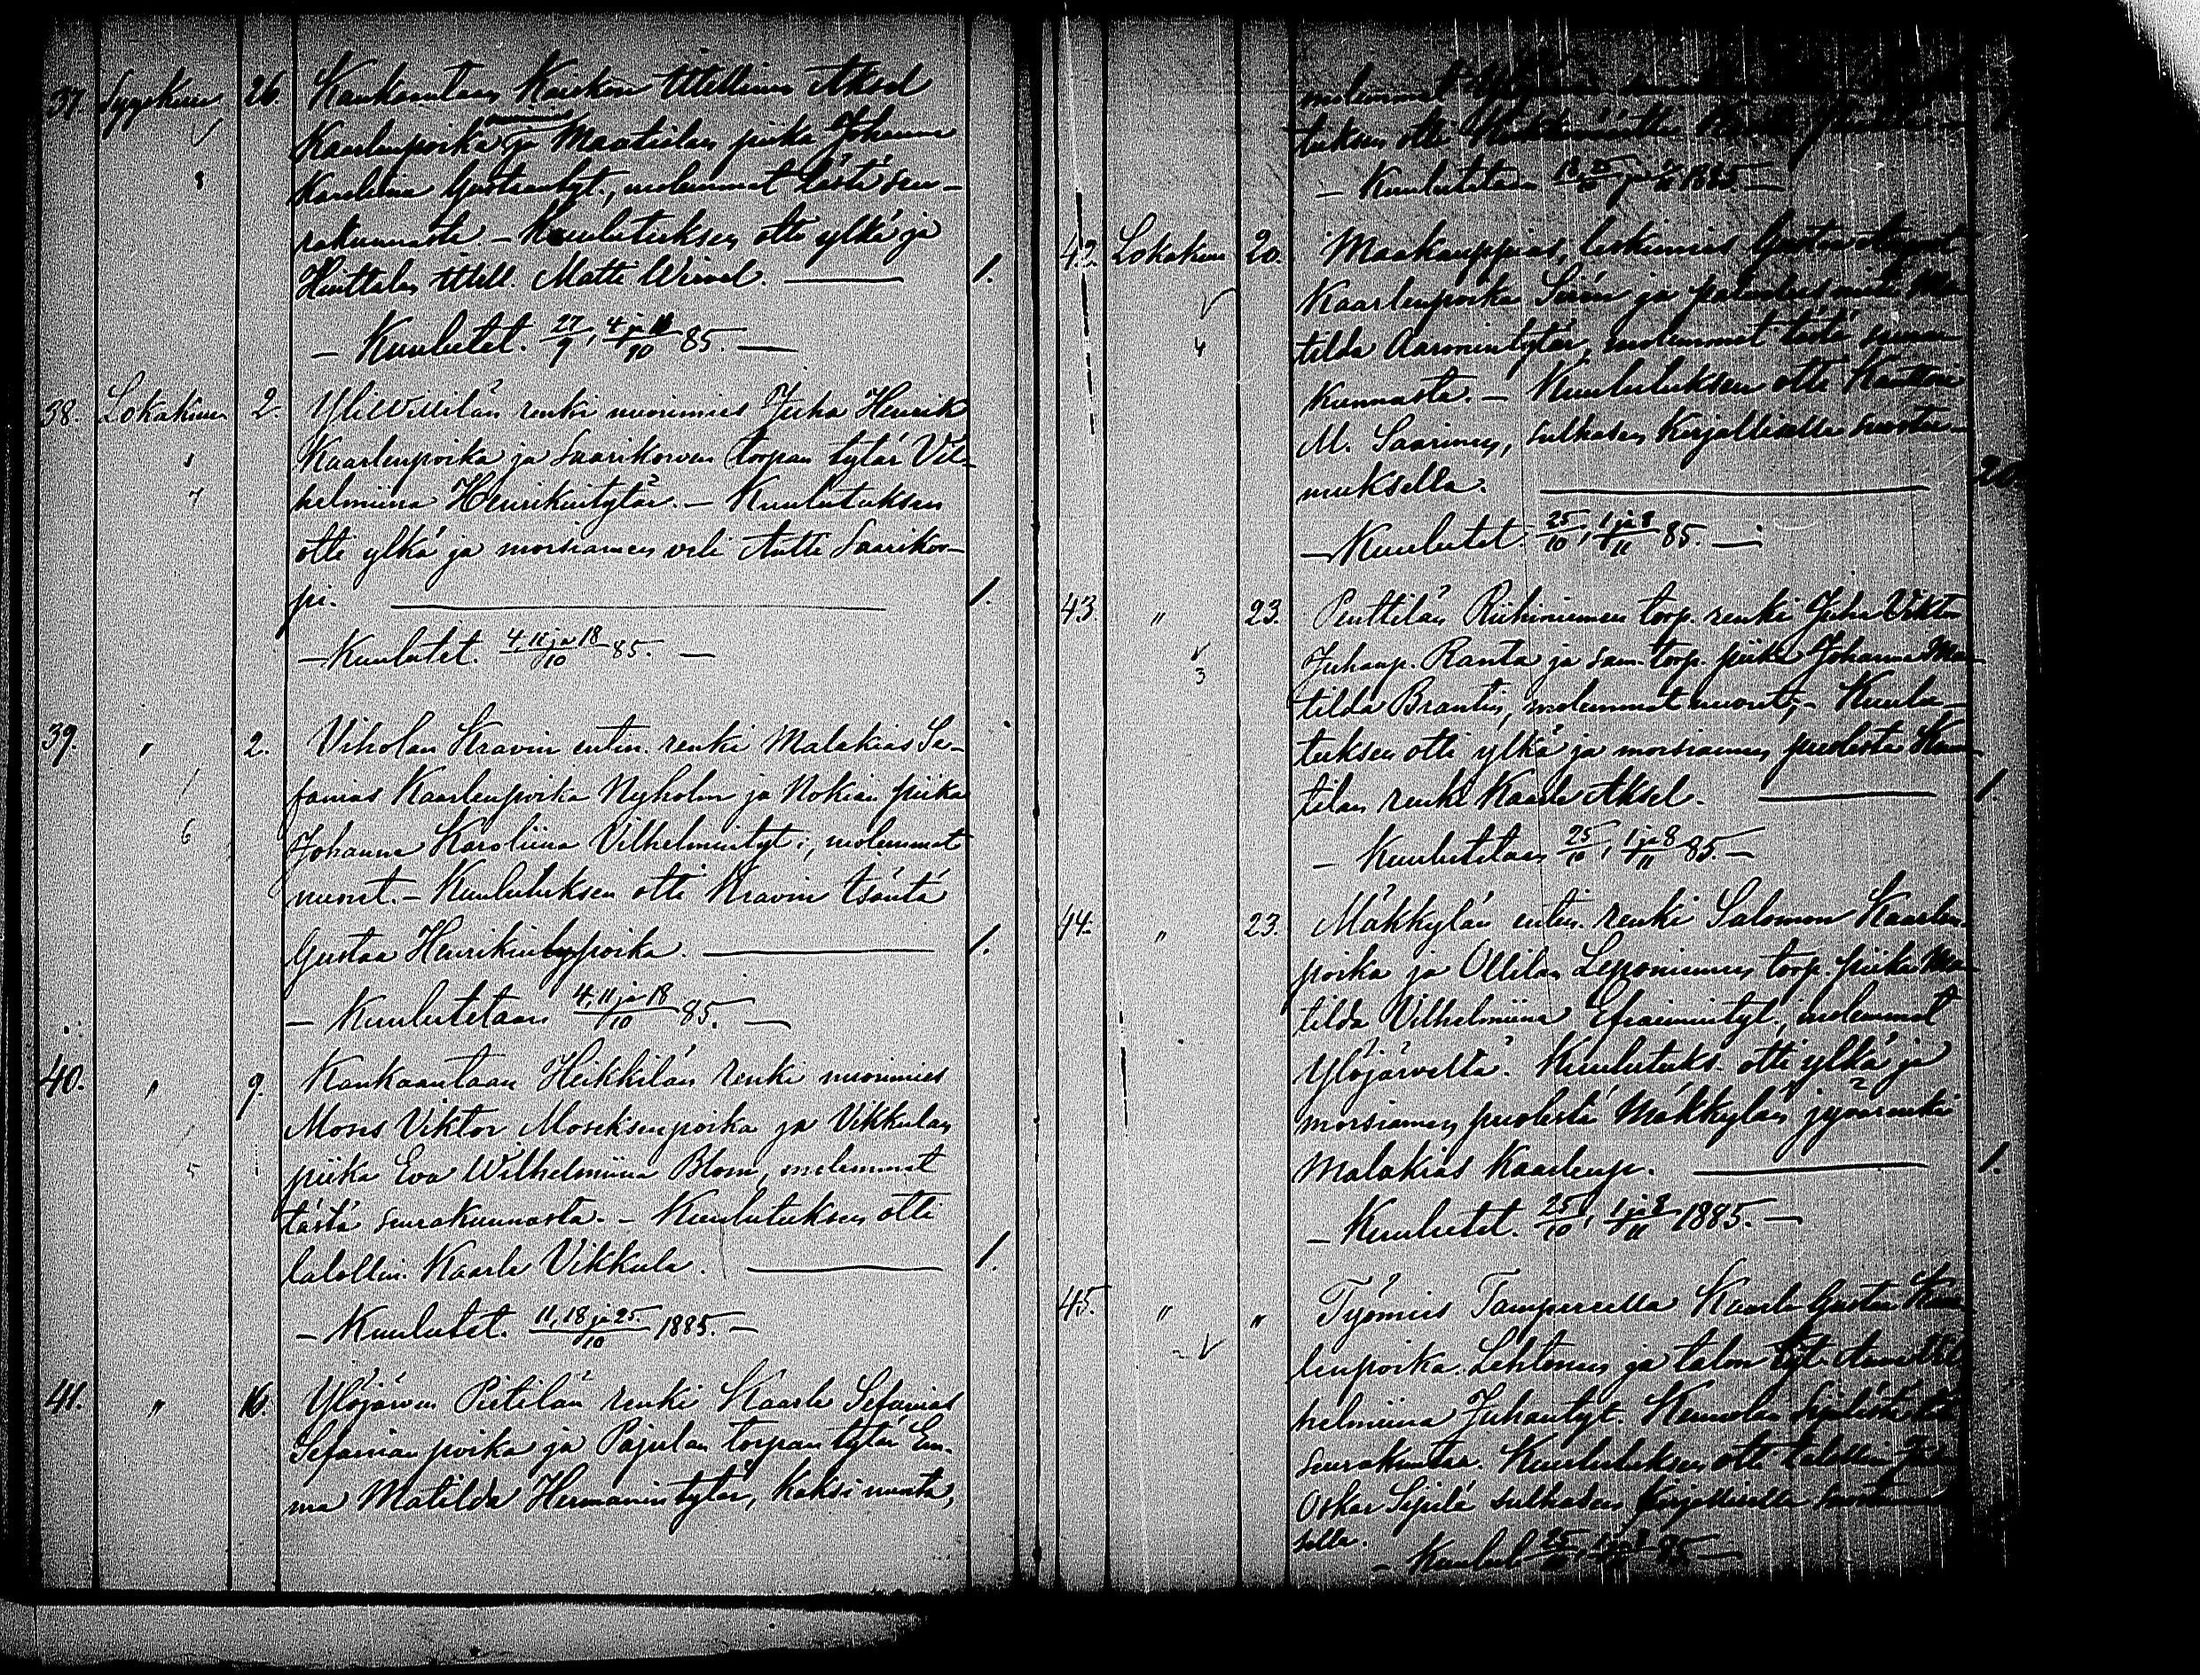 37. Syyskuu 26. Kankaantaan Kaiskon itsellinen Aksel
Kaarlenpoika ja Maatialan piika Johanna
Karoliina Gustaantyt., molemmat tästä seu-
rakunnasta. - Kuulutuksen otti ylkä ja
Hinttalan itsell. Matti Wirvel. 1.
- Kuulutet. 27/9, 4 ja 11/10 85. -
38. Lokakuu 2. YliWillilän renki nuorimies Juha Henrik
Kaarlenpoika ja Saarikorven torpan tytär Vil-
helmiina Henrikintytär. - Kuulutuksen
otti ylkä ja morsiamen veli Antti Saarikor-
pi. 1.
- Kuulutet. 4, 11 ja 18/10 85. -
39. " 2. Viholan Kravin entin. renki Malakias Se-
fanias Kaarlenpoika Nyholm ja Nokian piika
Johanna Karoliina Vilhelmintyt., molemmat
nuoret. - Kuulutuksen otti Kravin isäntä
Gustaa Henrikinpoika. 1.
- Kuulutetaan 4, 11 ja 18/10 85. -
40. " 9. Kankaantaan Heikkilän renki nuorimies
Moses Viktor Moseksenpoika ja Vikkulan
piika Eva Wilhelmiina Blom, molemmat
tästä seurakunnasta. - Kuulutuksen otti
talollin. Kaarle Vikkula. 1.
- Kuulutet. 11, 18 ja 25/10 1885. -
41. " 16. Ylöjärven Pietilän renki Kaarle Sefanias
Sefanianpoika ja Pajulan torpan tytär Em-
ma Matilda Hermanintytär, kaksi nuorta,
molemmat
tuksen otti
- Kuulutetaan 18, 25/10 ja 1/11 1885 -
42. Lokakuu 20. Maakauppias, leskimies Gustav August
Kaarlenpoika Sirén ja palvelus neiti Ma-
tilda Aaronintytär, molemmat tästä seura-
kunnasta. - Kuulutuksen otti Kanttori
M. Saarinen, sulhasen kirjallisella suostu-
muksella. 20.
- Kuulutet. 25/10, 1 ja 8/11 85. -
43. " 23. Penttilän Riihiniemen torp. renki Juha Viktor
Juhanp. Ranta ja sam. torp. piika Johanna Ma-
tilda Brantin, molemmat nuoret; - Kuulu-
tuksen otti ylkä ja morsiamen puolesta
tilan renki Kaarle Aksel. 1.
- Kuulutetaan 25/10, 1 ja 8/11 85. -
44. " 23. Mäkkylän entin. renki Salomon Kaarlen-
poika ja Ollilan Leponiemen torp. piika Ma-
tilda Vilhelmiina Efraimintyt., molemmat
Ylöjärveltä. Kuulutuks. otti ylkä ja
morsiamen puolesta Mäkkylän jyvärenki
Malakias Kaarlenp. 1.
- Kuulutet. 25/10, 1 ja 8/11 1885. -
45. " " Työmies Tampereella Kaarle Gustaa Kaar-
lenpoika Lehtonen ja talon tyt. Anna Vil-
helmiina Juhantyt. Kennolan Sipilästä
seurakuntaa. Kuulutuksen otti talollin
Oskar Sipilä sulhasen kirjallisella suostumuk-
sella.
- Kuulut. 25/10, 1 ja 8/11 85 -